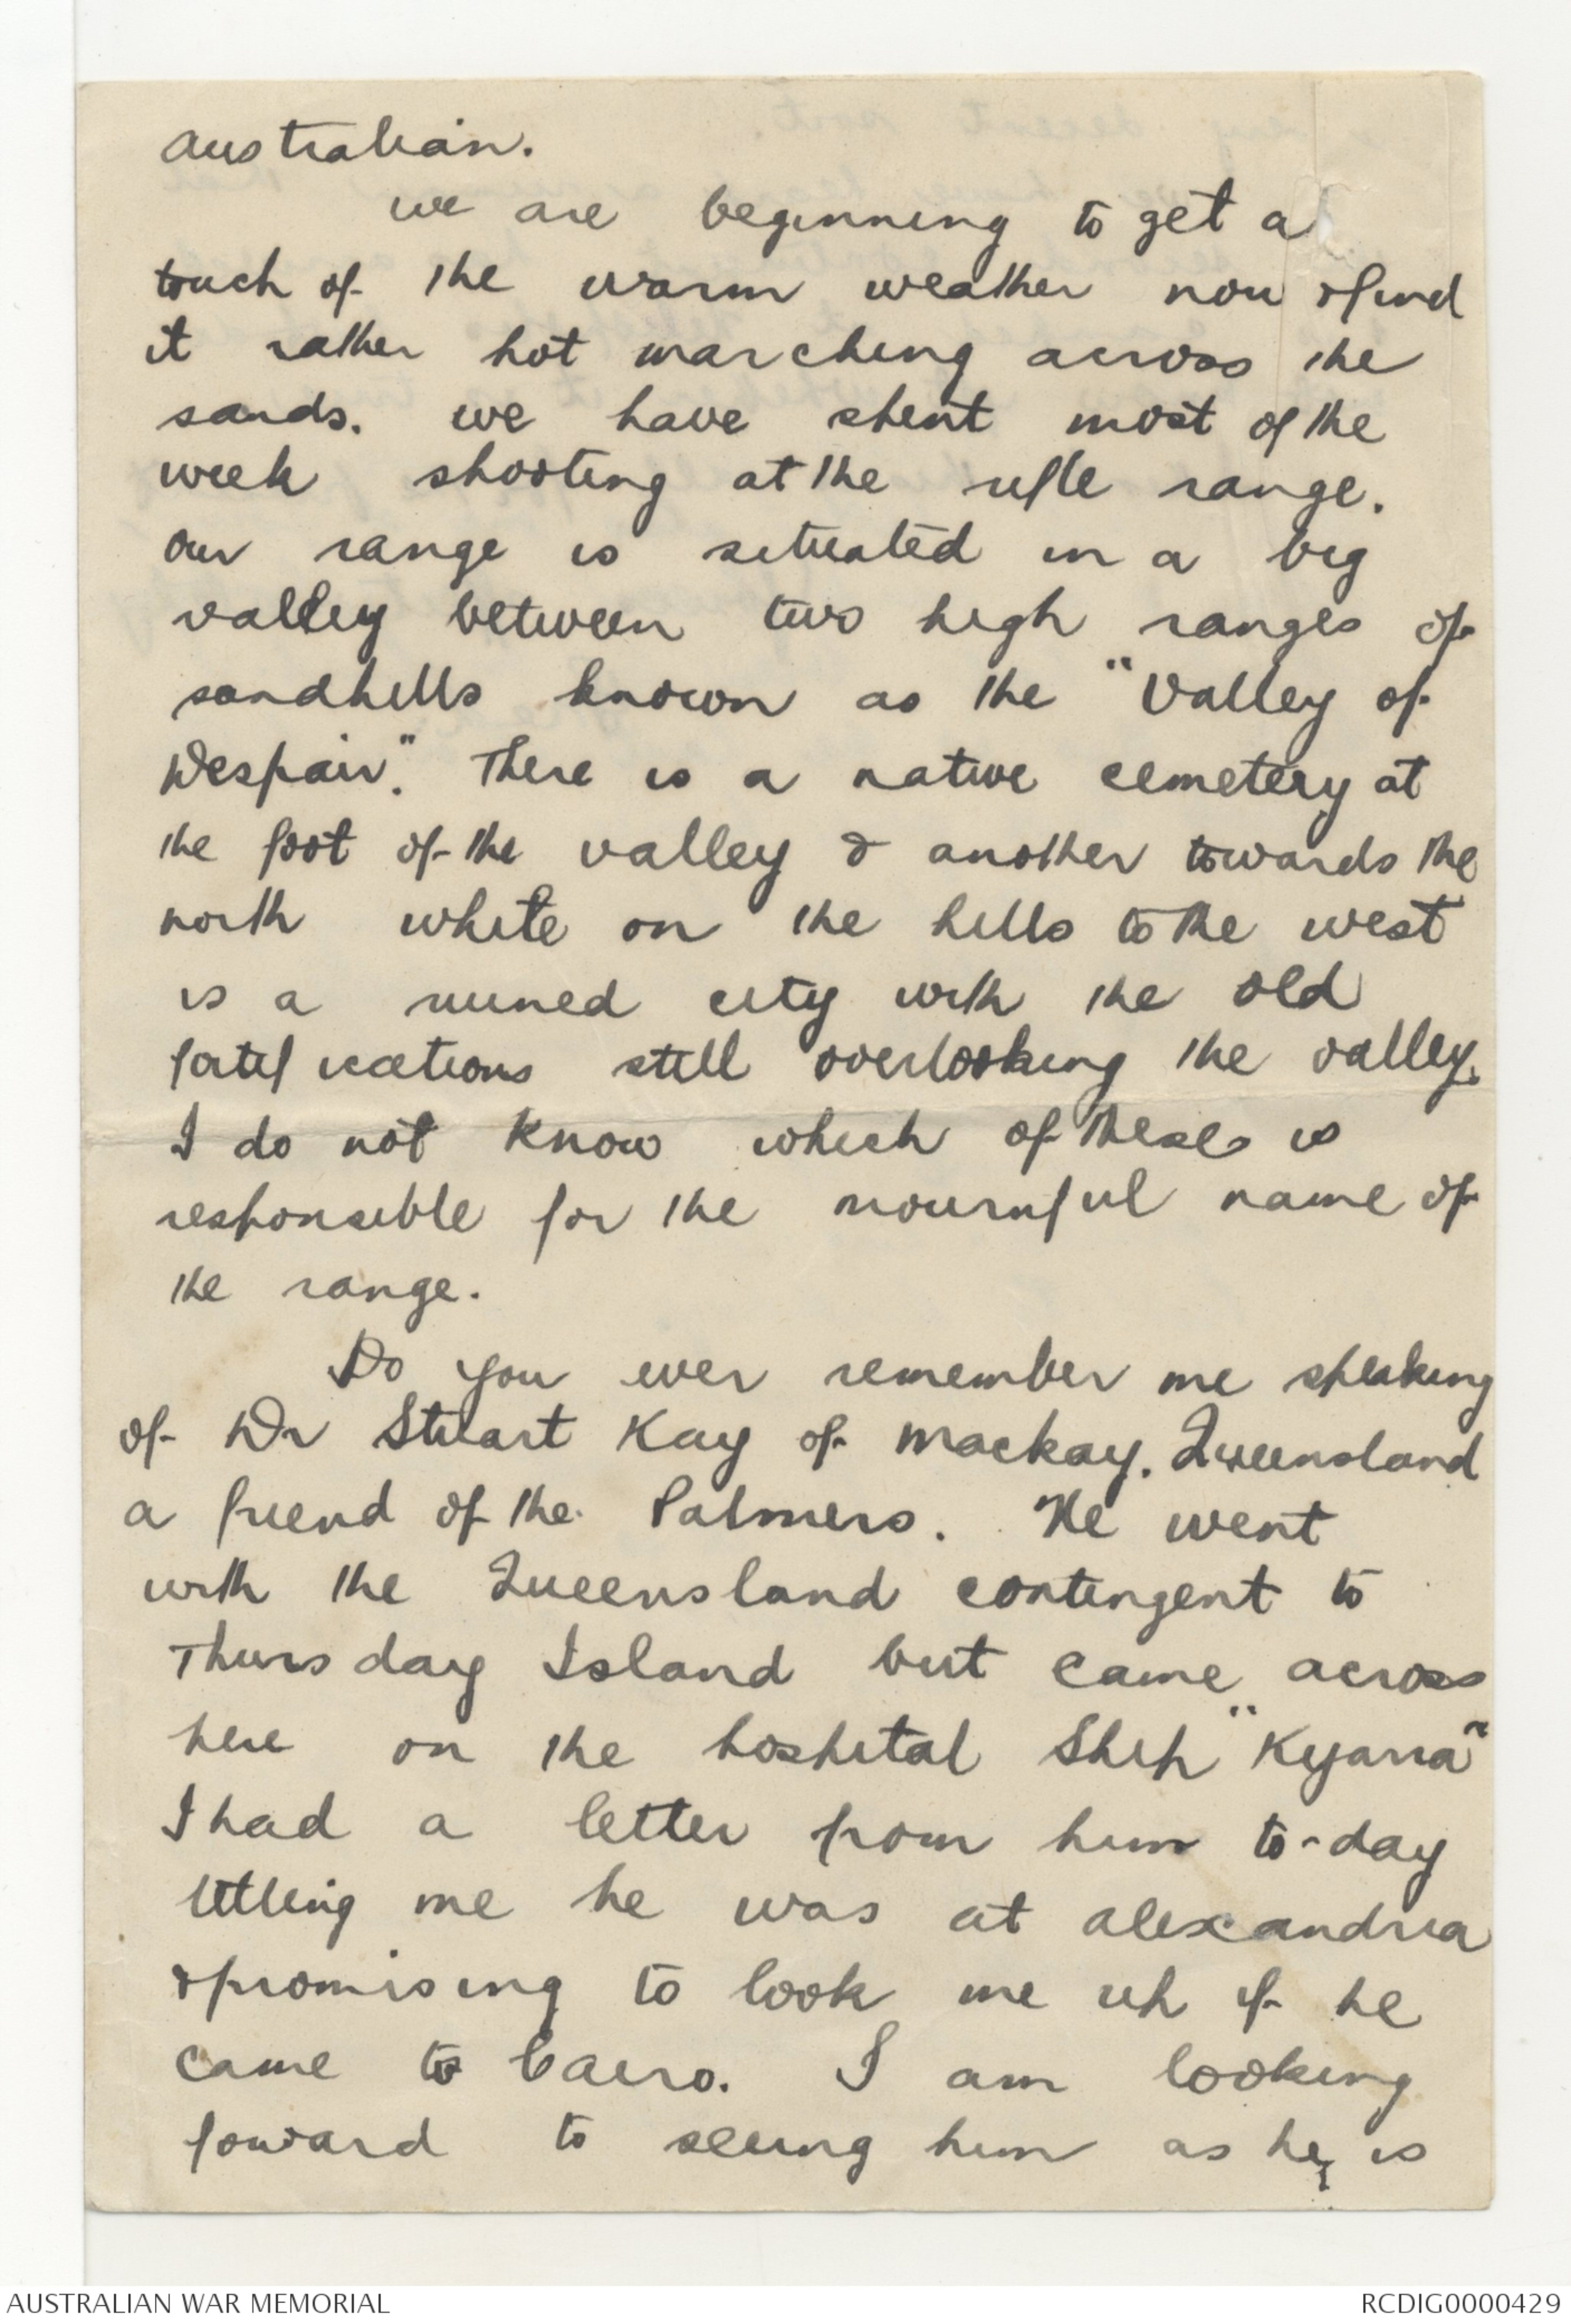 Australian.
We are beginning to get a
touch of the warm weather now & find
it rather hot marching across the
sands. We have spent most of the
week shooting at the rifle range.
Our range is situated in a big
valley between two high ranges of
sandhills known as the "Valley of
Despair". There is a native cemetery at
the foot of the valley & another towards the
north white on the hills to the west
is a ruined city with the old
fortifications still overlooking the valley.
I do not know which of these is
responsible for the mournful name of
the range.
Do you ever remember me speaking
of Dr Stuart Kay of Mackay. Queensland
a friend of the Palmers. He went
with the Queensland contingent to
Thursday Island but came across
here on the hospital Ship "Kyarra"
I had a letter from him to-day
telling me he was at Alexandria
& promising to look me up if he
came to Cairo. I am looking
foward to seeing him as he is
AUSTRALIAN WAR MEMORIAL
RCDIG0000429